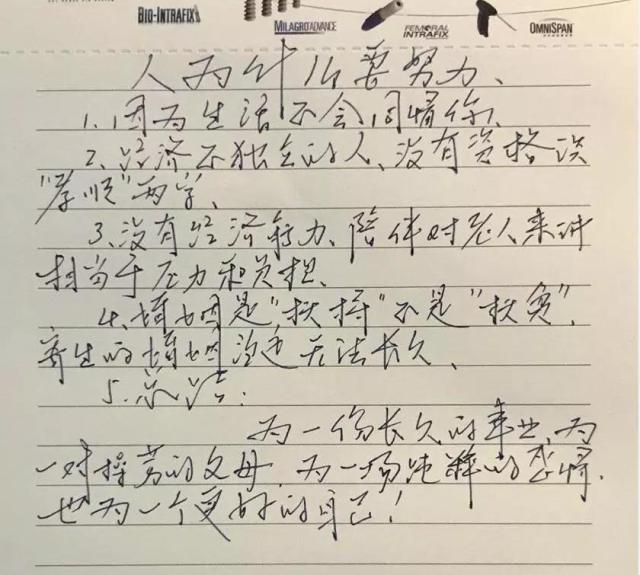 BIO-INTRAFIX
MILAGRO ADVANCE
FEMORAL INTRAFIX
OMNISPAN
人为什么要努力、
1、因为生活不会同情你、
2、经济不独立的人、没有资格谈
"孝顺"两字、
3、没有经济能力、陪伴对老人来讲
相当于压力和负担、
4、婚姻是"扶持"不是"扶贫"、
寄生的婚姻注定无法长久、
5、总结:
为一份长久的事业、为
一对操劳的父母、为一场纯粹的爱情、
也为一个更好的自己!